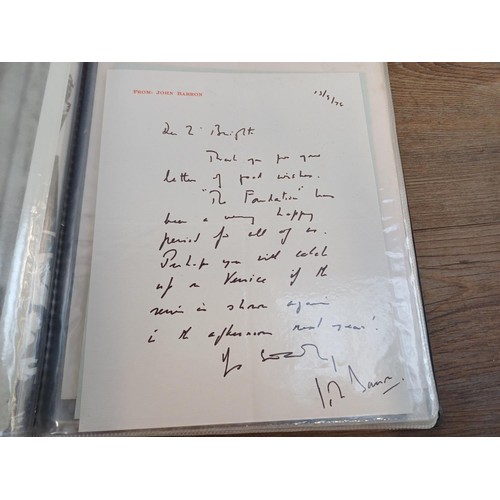 FROM: JOHN BARRON
23/9/72
Dear Mr Bright
Thank you for your
letter of good wishes.
"The Foundation" has
been a very happy
period for all of us.
Perhaps you will catch
up on Venice if the
series is shown again
in the afternoon next year!
Yrs sincerely,
John Barron.